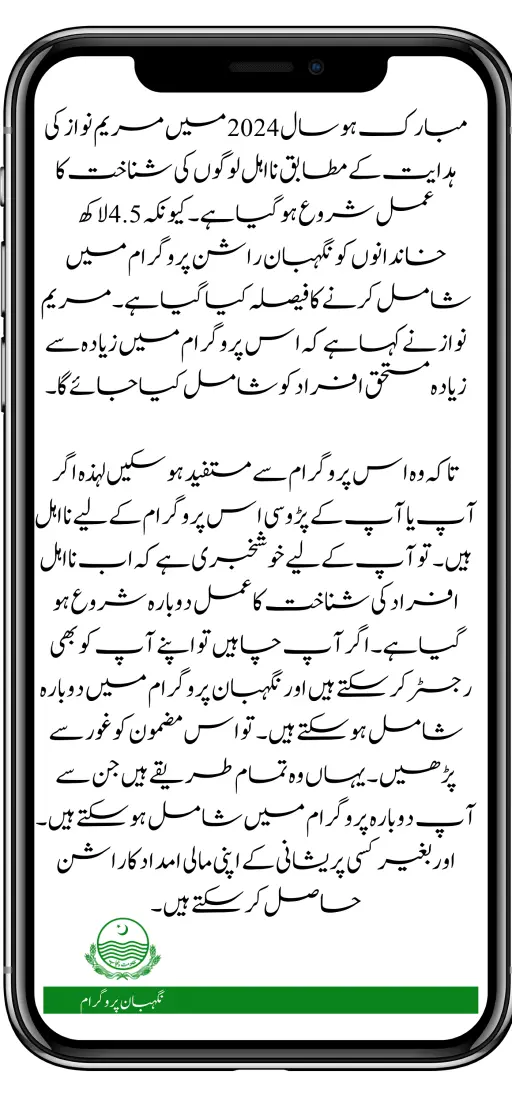 مبارک ہو سال 2024 میں مریم نواز کی
ہدایت کے مطابق نااہل لوگوں کی شناخت کا
عمل شروع ہو گیا ہے۔ کیونکہ 4.5 لاکھ
خاندانوں کو نگہبان راشن پروگرام میں
شامل کرنے کا فیصلہ کیا گیا ہے۔ مریم
نواز نے کہا ہے کہ اس پروگرام میں زیادہ سے
زیادہ مستحق افراد کو شامل کیا جائے گا۔
تاکہ وہ اس پروگرام سے مستفید ہو سکیں لہذہ اگر
آپ یا آپ کے پڑوسی اس پروگرام کے لیے نااہل
ہیں۔ تو آپ کے لیے خوشخبری ہے کہ اب نااہل
افراد کی شناخت کا عمل دوبارہ شروع ہو
گیا ہے۔ اگر آپ چاہیں تو اپنے آپ کو بھی
رجسٹر کر سکتے ہیں اور نگہبان پروگرام میں دوبارہ
شامل ہو سکتے ہیں۔ تو اس مضمون کو غور سے
پڑھیں۔ یہاں وہ تمام طریقے ہیں جن سے
آپ دوبارہ پروگرام میں شامل ہو سکتے ہیں۔
اور بغیر کسی پریشانی کے اپنی مالی امداد کا راشن
حاصل کر سکتے ہیں۔
نگہبان پروگرام